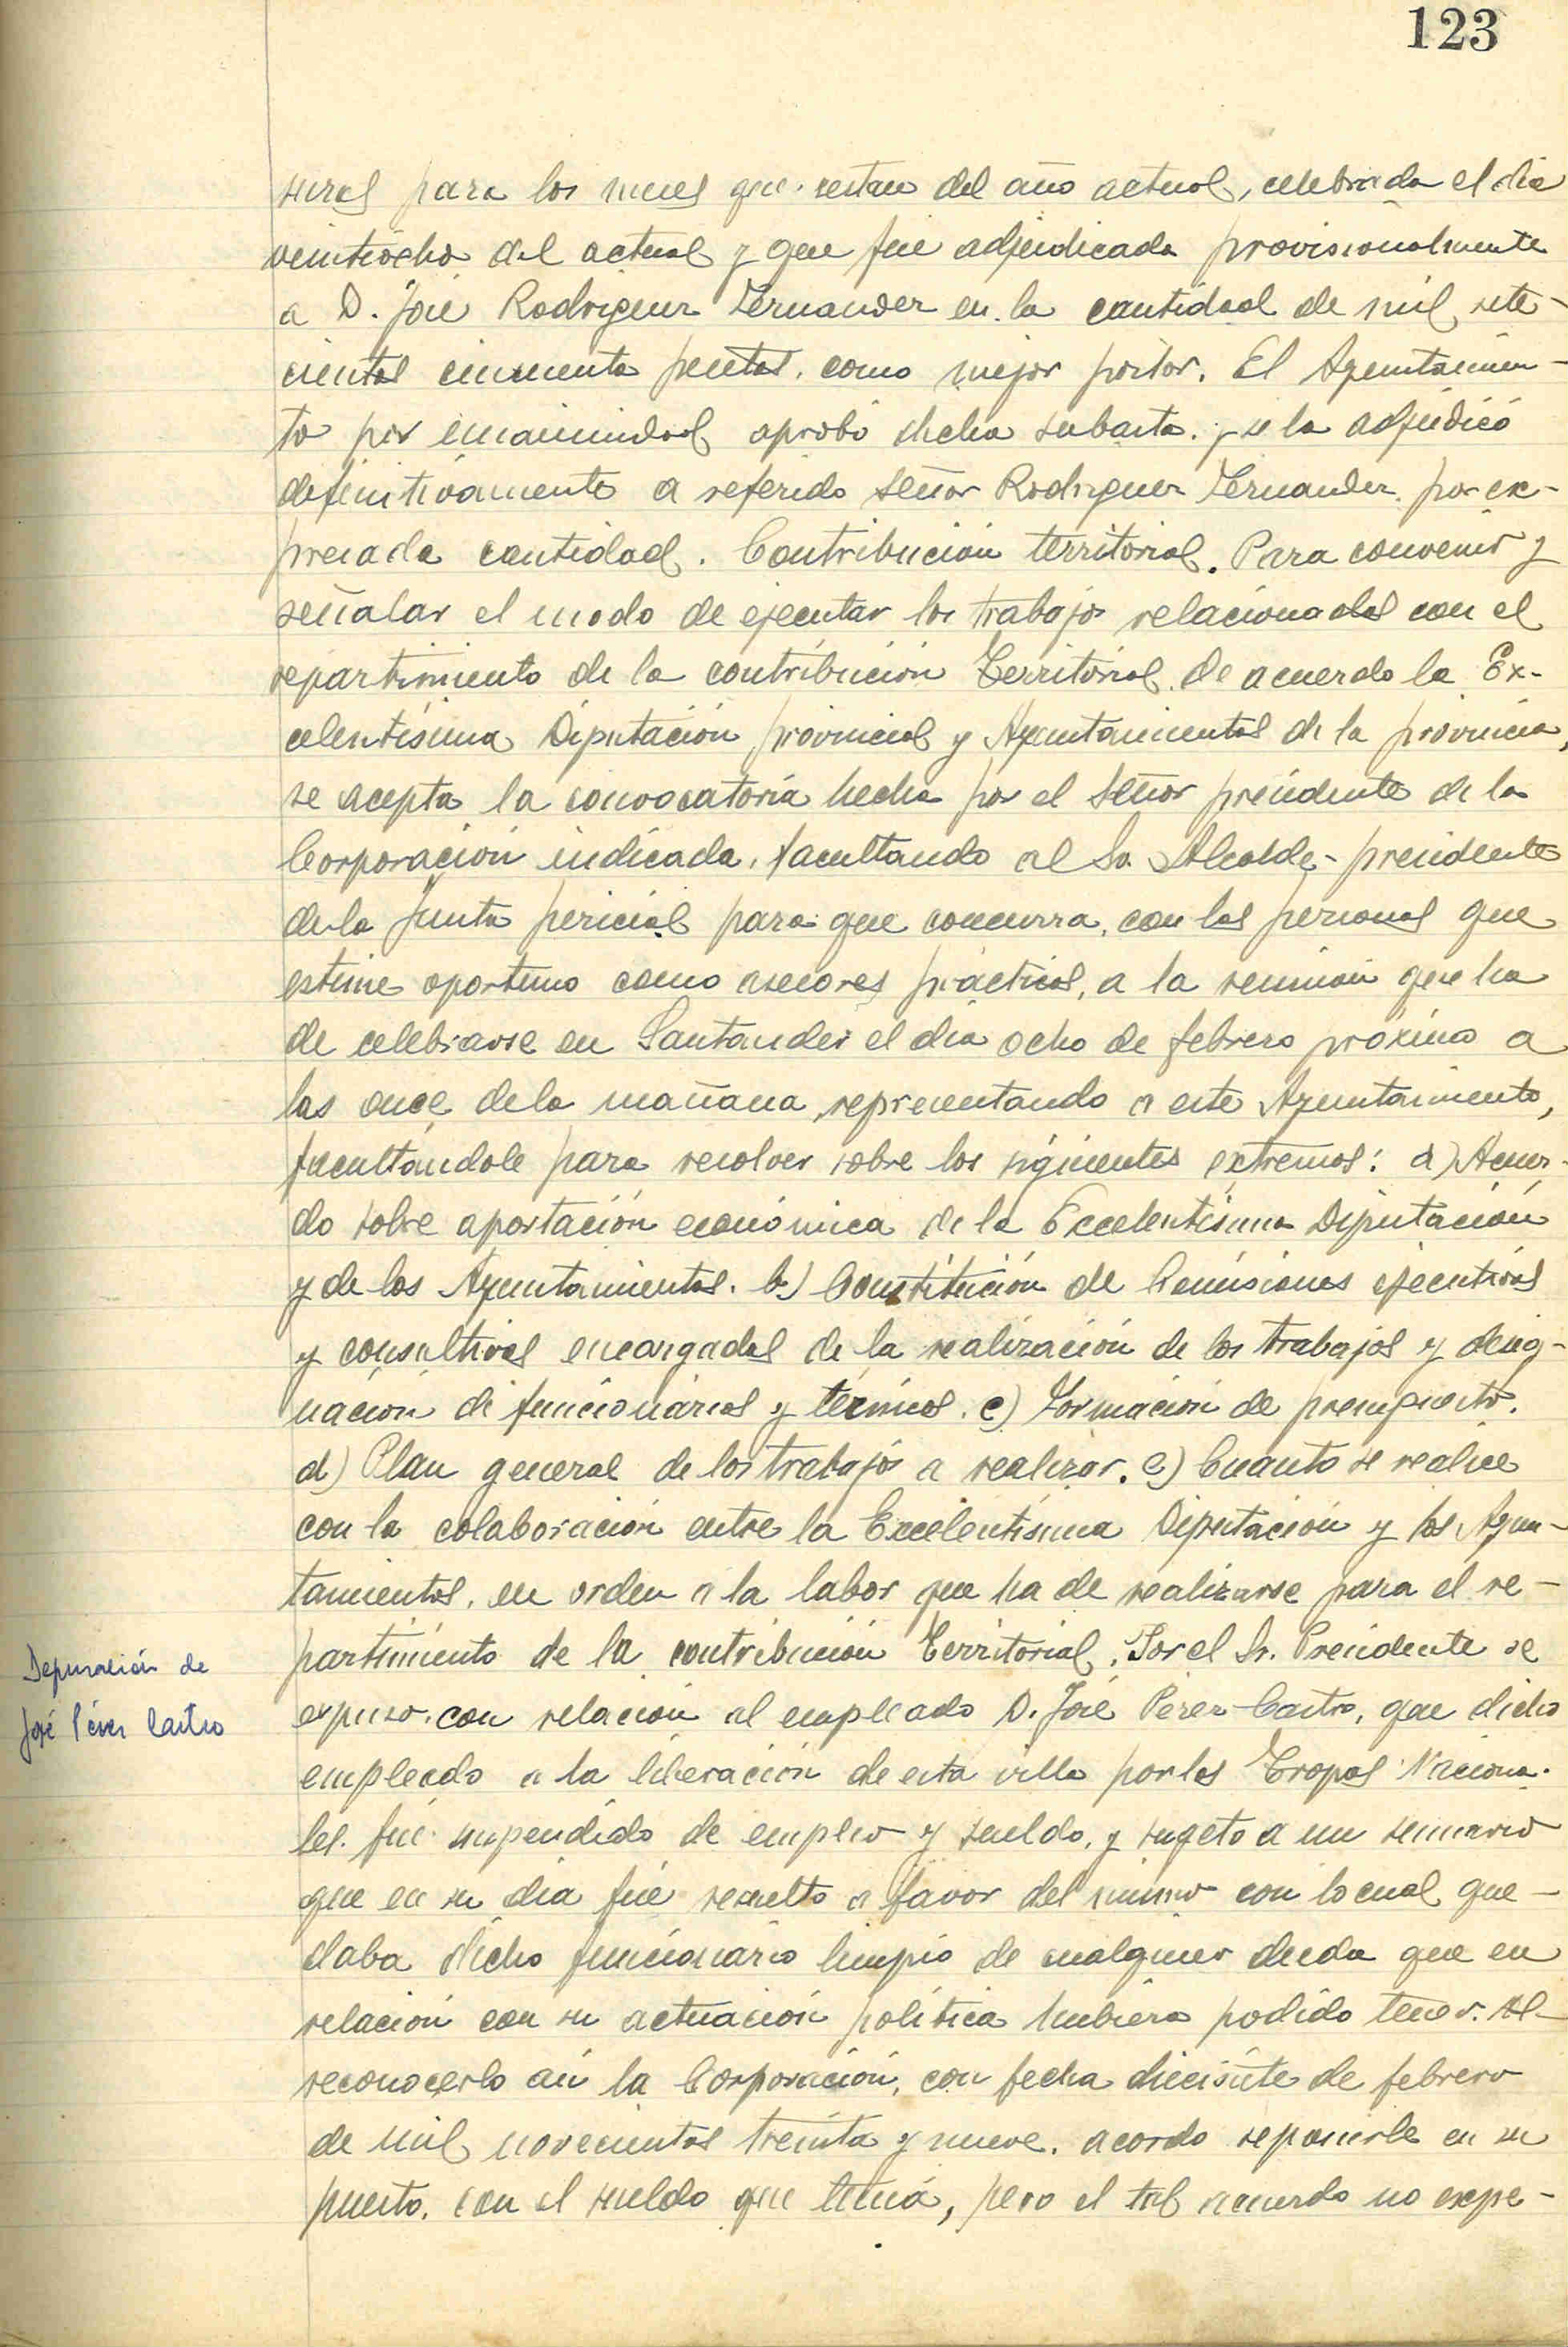 123
suras para los meses que restan del año actual, celebrada el dia
veintiocho del actual y que fue adjudicada provisionalmente
a D. José Rodriguez Fernandez en la cantidad de mil sete-
cientas cincuenta pesetas, como mejor postor. El Ayuntamien-
to por unanimidad aprobó dicha subasta y se la adjudicó
definitivamente a referido señor Rodriguez Fernandez por ex-
presada cantidad. Contribución territorial. Para convenir y
señalar el modo de ejecutar los trabajos relacionados con el
repartimiento de la contribución Territorial de acuerdo la Ex-
celentísima Diputación provincial y Ayuntamientos de la provincia,
se acepta la convocatoria hecha por el Señor presidente de la
Corporación indicada, facultando al Sr. Alcalde-presidente
de la Junta pericial para que concurra, con las personas que
estime oportuno como asesores prácticos, a la reunión que ha
de celebrarse en Santander el dia ocho de febrero próximo a
las once de la mañana, representando a este Ayuntamiento,
facultándole para resolver sobre los siguientes extremos: a) Acuer-
do sobre aportación económica de la Excelentísima Diputación
y de los Ayuntamientos. b) Constitución de Comisiones ejecutivas
y consultivas encargadas de la realización de los trabajos y desig-
nación de funcionarios y técnicos. c) Formación de presupuesto.
d) Plan general de los trabajos a realizar. e) Cuanto se realice
con la colaboración entre la Excelentísima Diputación y los Ayun-
tamientos, en orden a la labor que ha de realizarse para el re-
partimiento de la contribución Territorial. Por el Sr. Presidente se
Depuración de
José Pérez Castro
expuso, con relación al empleado D. José Pérez Castro, que dicho
empleado a la liberación de esta villa por las Tropas Naciona-
les, fué suspendido de empleo y sueldo, y sugeto a un sumario
que en su dia fué resuelto a favor del mismo con lo cual que-
daba dicho funcionario limpio de cualquier duda que en
relación con su actuación política hubiera podido tener. Al
reconocerlo así la Corporación, con fecha diecisiete de febrero
de mil novecientos treinta y nueve, acordo reponerle en su
puesto, con el sueldo que tenía, pero el tal acuerdo no expe-